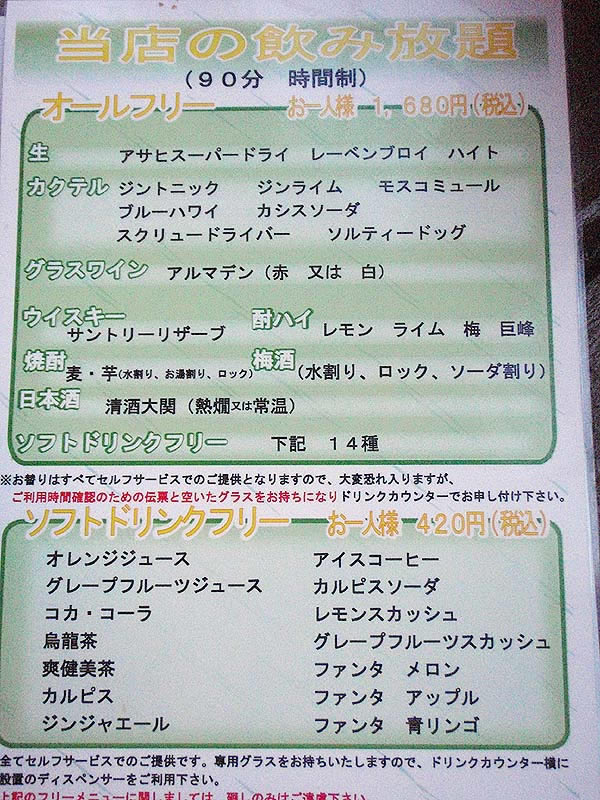 当店の飲み放題
（９０分　時間制）
オールフリー　お一人様　１，６８０円（税込）
生　アサヒスーパードライ　レーベンブロイ　ハイト
カクテル　ジントニック　ジンライム　モスコミュール
ブルーハワイ　カシスソーダ
スクリュードライバー　ソルティードッグ
グラスワイン　アルマデン（赤　又は　白）
ウイスキー　サントリーリザーブ　酎ハイ　レモン　ライム　梅　巨峰
焼酎　麦・芋（水割り、お湯割り、ロック）　梅酒　（水割り、ロック、ソーダ割り）
日本酒　清酒大関（熱燗又は常温）
ソフトドリンクフリー　下記　１４種
※お替りはすべてセルフサービスでのご提供となりますので、大変恐れ入りますが、
ご利用時間確認のための伝票と空いたグラスをお持ちになりドリンクカウンターでお申し付け下さい。
ソフトドリンクフリー　お一人様　４２０円（税込）
オレンジジュース　アイスコーヒー
グレープフルーツジュース　カルピスソーダ
コカ・コーラ　レモンスカッシュ
烏龍茶　グレープフルーツスカッシュ
爽健美茶　ファンタ　メロン
カルピス　ファンタ　アップル
ジンジャエール　ファンタ　青リンゴ
全てセルフサービスでのご提供です。専用グラスをお持ちいたしますので、ドリンクカウンター横に
設置のディスペンサーをご利用下さい。
上記のフリーメニューに関しましては、廻しのみはご遠慮下さい。